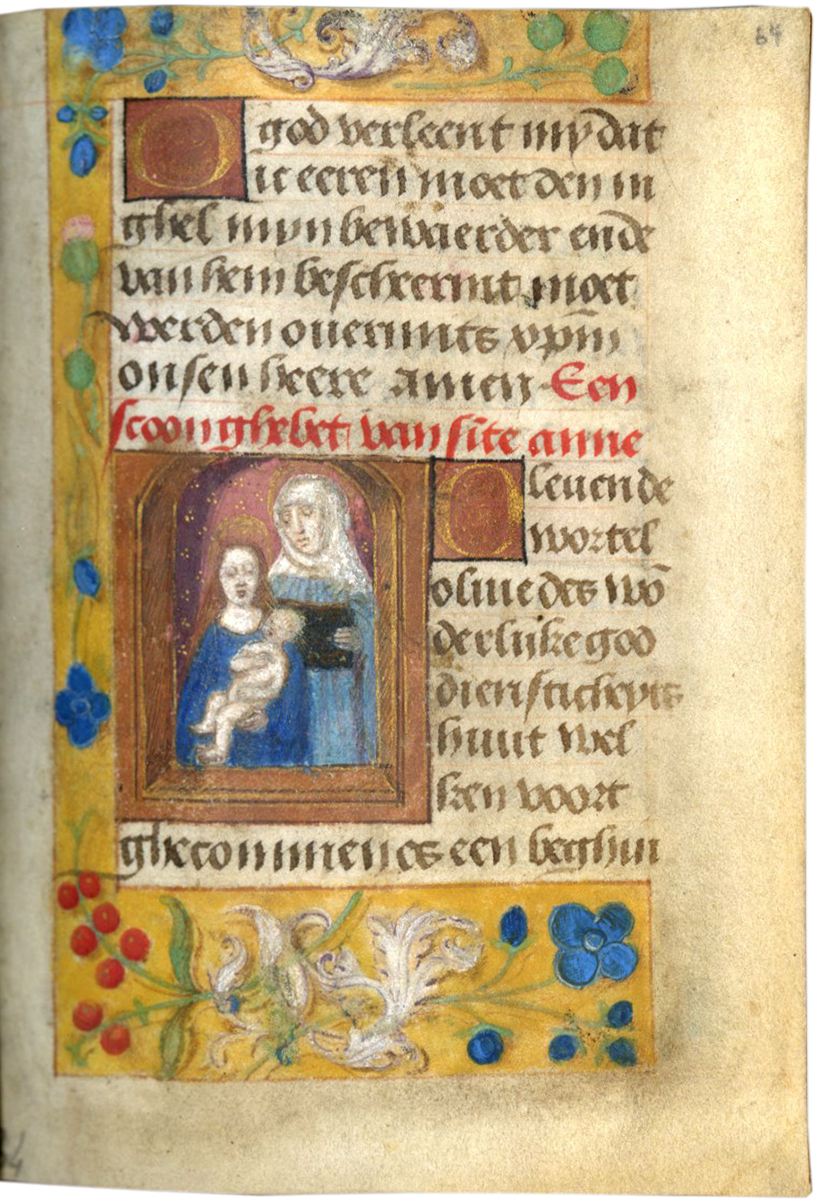 64
O god verleent my dat
ic eeren moet den in
ghel myn bewaerder ende
van hem bescheermt moet
werden ouermits xpm̄
onsen heere amen Een
scoon ghebet van sīte anne
O leuende
wortel
oliue des wō
derlijke god
diensticheyts
huut wel
ken voort
ghecommen es een beghin